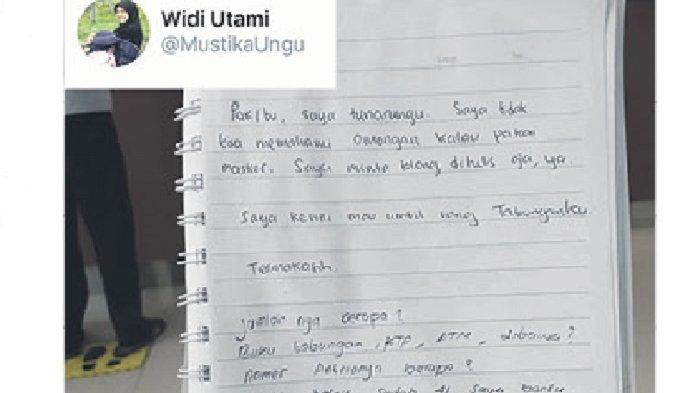 Widi Utami
@MustikaUngu
Pak/bu, saya tunarungu. Saya tidak
bisa memahami omongan kalau pakai
masker. Saya minta tolong ditulis aja, ya.
Saya kesini mau ambil uang Tabunganku.
Terimakasih.
jumlah nya berapa?
Buku tabungan, KTP, ATM, dibawa?
nomer antriannya berapa?